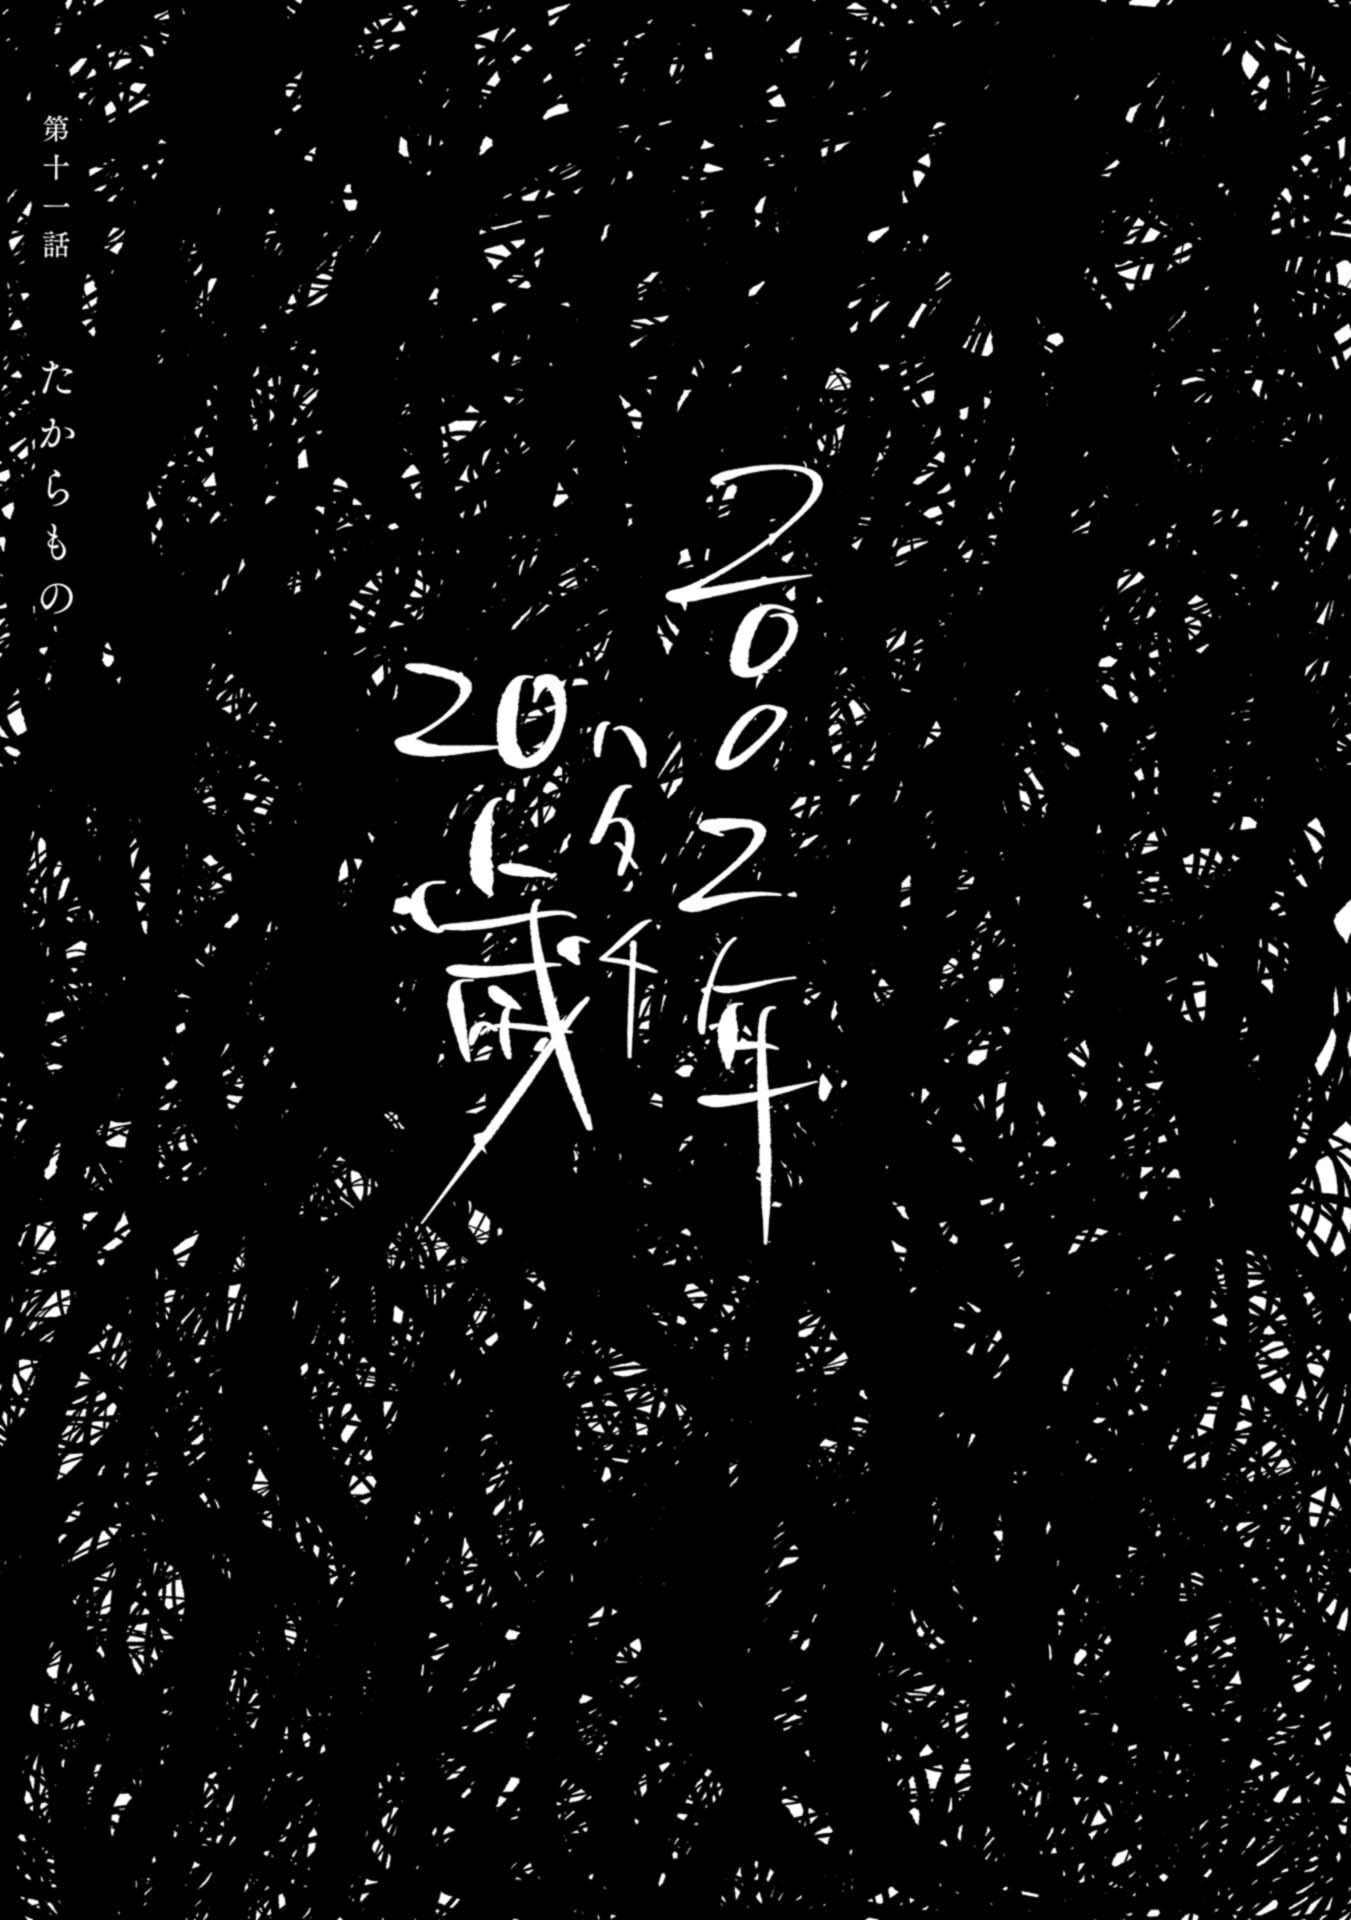 2002年
ハタチ
20歳
第十一話 たからもの